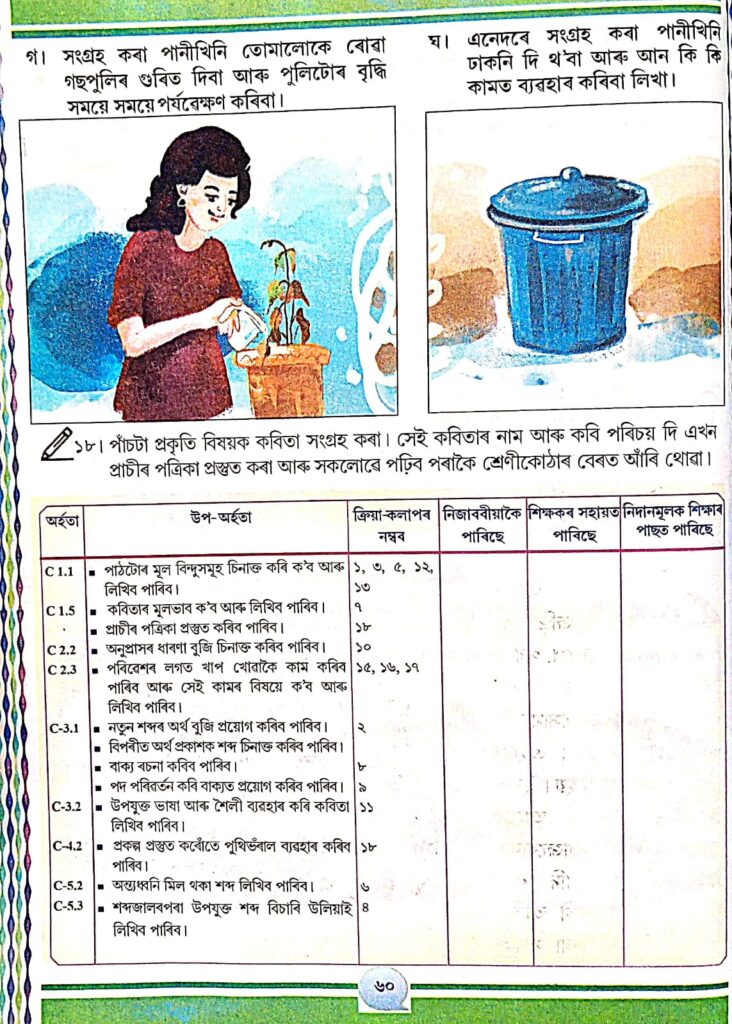 গ। সংগ্ৰহ কৰা পানীখিনি তোমালোকে ৰোৱা
গছপুলিৰ গুৰিত দিবা আৰু পুলিটোৰ বৃদ্ধি
সময়ে সময়ে পৰ্যৱেক্ষণ কৰিবা।
ঘ। এনেদৰে সংগ্ৰহ কৰা পানীখিনি
ঢাকনি দি থ'বা আৰু আন কি কি
কামত ব্যৱহাৰ কৰিবা লিখা।
১৮। পাঁচটা প্ৰকৃতি বিষয়ক কবিতা সংগ্ৰহ কৰা। সেই কবিতাৰ নাম আৰু কবি পৰিচয় দি এখন
প্ৰাচীৰ পত্ৰিকা প্ৰস্তুত কৰা আৰু সকলোৱে পঢ়িব পৰাকৈ শ্ৰেণীকোঠাৰ বেৰত আঁৰি থোৱা।
অৰ্হতা উপ-অৰ্হতা ক্ৰিয়া-কলাপৰ নিজাববীয়াকৈ শিক্ষকৰ সহায়ত নিদানমূলক শিক্ষাৰ
নম্বৰ পাৰিছে পাৰিছে পাছত পাৰিছে
C 1.1 ▪ পাঠটোৰ মূল বিন্দুসমূহ চিনাক্ত কৰি ক'ব আৰু ১, ৩, ৫, ১২,
লিখিব পাৰিব। ১৩
C 1.5 ▪ কবিতাৰ মূলভাব ক'ব আৰু লিখিব পাৰিব। ৭
▪ প্ৰাচীৰ পত্ৰিকা প্ৰস্তুত কৰিব পাৰিব। ১৮
C 2.2 ▪ অনুপ্ৰাসৰ ধাৰণা বুজি চিনাক্ত কৰিব পাৰিব। ১০
C 2.3 ▪ পৰিৱেশৰ লগত খাপ খোৱাকৈ কাম কৰিব ১৫, ১৬, ১৭
পাৰিব আৰু সেই কামৰ বিষয়ে ক'ব আৰু
লিখিব পাৰিব।
C-3.1 ▪ নতুন শব্দৰ অৰ্থ বুজি প্ৰয়োগ কৰিব পাৰিব। ২
▪ বিপৰীত অৰ্থ প্ৰকাশক শব্দ চিনাক্ত কৰিব পাৰিব।
▪ বাক্য ৰচনা কৰিব পাৰিব। ৮
▪ পদ পৰিৱৰ্তন কৰি বাক্যত প্ৰয়োগ কৰিব পাৰিব। ৯
C-3.2 ▪ উপযুক্ত ভাষা আৰু শৈলী ব্যৱহাৰ কৰি কবিতা ১১
লিখিব পাৰিব।
C-4.2 ▪ প্ৰকল্প প্ৰস্তুত কৰোঁতে পুথিভঁৰাল ব্যৱহাৰ কৰিব ১৮
পাৰিব।
C-5.2 ▪ অন্ত্যধ্বনি মিল থকা শব্দ লিখিব পাৰিব। ৬
C-5.3 ▪ শব্দজালৰপৰা উপযুক্ত শব্দ বিচাৰি উলিয়াই ৪
লিখিব পাৰিব।
৬০